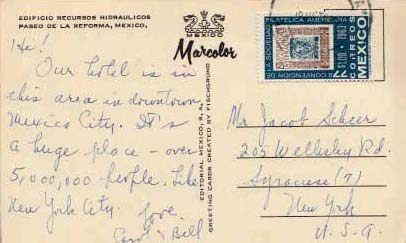 EDIFICIO RECURSOS HIDRAULICOS
PASEO DE LA REFORMA, MEXICO,
Hi!
Our hotel is in
this area is downtown
Mexico City. It's
a huge place - over
5,000,000 people. Like
New York City.
Love
Carol & Bill
MEXICO
Marcolor
EDITORIAL MEXICO, S. A.
GREETING CARDS CREATED BY FISCHGRUND
II CONVENCION DE LA SOCIEDAD FILATELICA AMERICANA
1963
CORREOS
MEXICO
Mr Jacob Scheer
205 Wellesley Rd.
Syracuse (7)
New York
U.S.A.